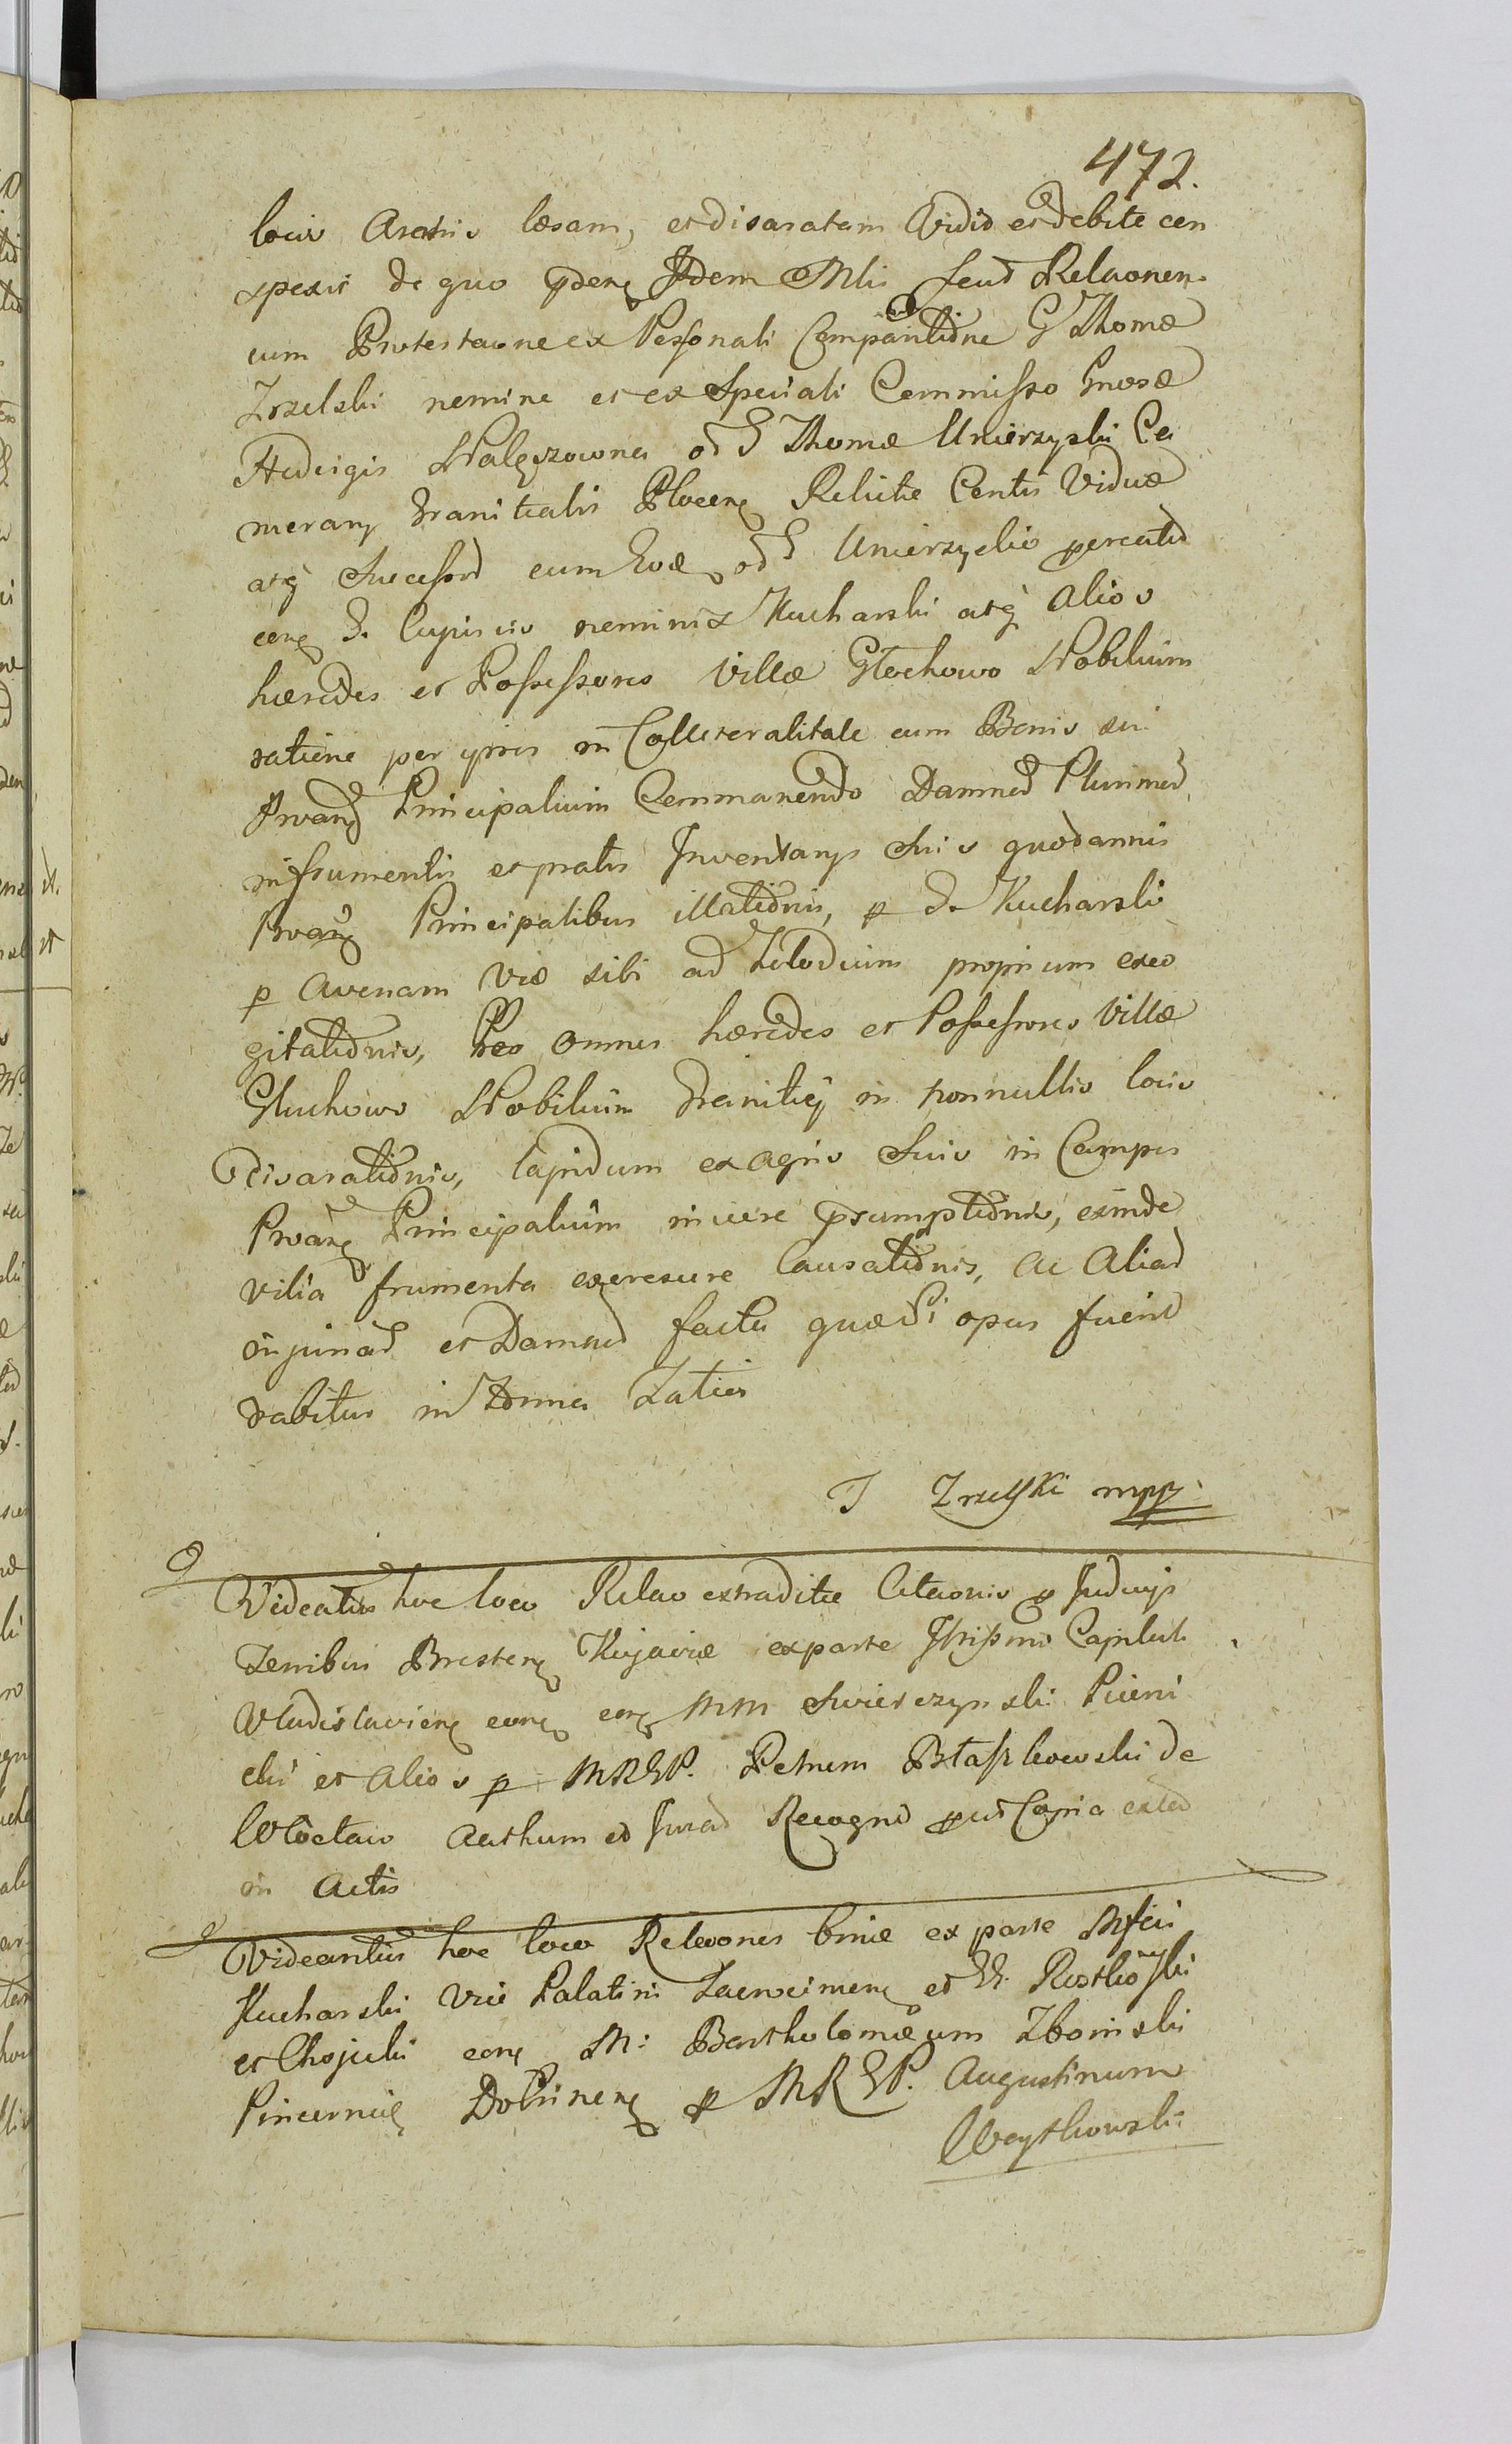 472.
locis Aratris læsam, et disaratam vidit et debite con
spexit de quo idem Mlis fecit Relaonem
cum Protestaone ex Personali Comparitione G Thomæ
Zrzelski nomine et ex Speciali Commisso Gnosæ
Hedvigis Nałęczowna od G Thomæ Umierzyski Ca
merarij Granitialis Plocen Relictæ Contis Viduæ
atq Successor cum Gæ od G Umierzyskis procreator
con G. Cupiscis nominis Kucharski atq Alios
hæredes et Possessores Villæ Głochowo Nobilium
ratione per ipsos in Collateralitate cum Bonis sui
Prõang Principalium Commanendo Damnor Plurimor
in frumentis et pratis Inventarys Suis quodannis
Prõang Principalibus illationis, p G. Kucharski
p Avenam Viæ sibi ad Telodium proprium exco
gitationis, Peo omnes hæredes et Possessores Villæ
Głuchowo Nobilium Granitiej in nonnullis locis
disarationis, lapidum ex agris Suis in Campos
Prõang Principalium inicere præsumptionis, exinde
vilia frumenta excrescere Causationis, ac Aliar
injuriar et Damnor facta quæ si opus fuerit
dabitur in Termo Latior
T Zrzelski mpp
Videatur hoc loco Relao extraditæ Citaonis p Judicijs
Terribus Bresten Kujaviæ ex parte Illrissmi Capituli
Vladislavien con MM Swierczynski Pieni
cki et Alios p MREP. Petrum Błaszkowski de
Włocław Authum et Jurat Recognit put Copia extat
in Actis
Videantur hoc loco Relaones binæ ex parte Mfici
Kucharski Vice Palatini et GG. Rostkowski
et Chojecki con M: Bartholomæum Zboinski
Pincernid Dobrinen p MREP. Augustinum
Woytkowski